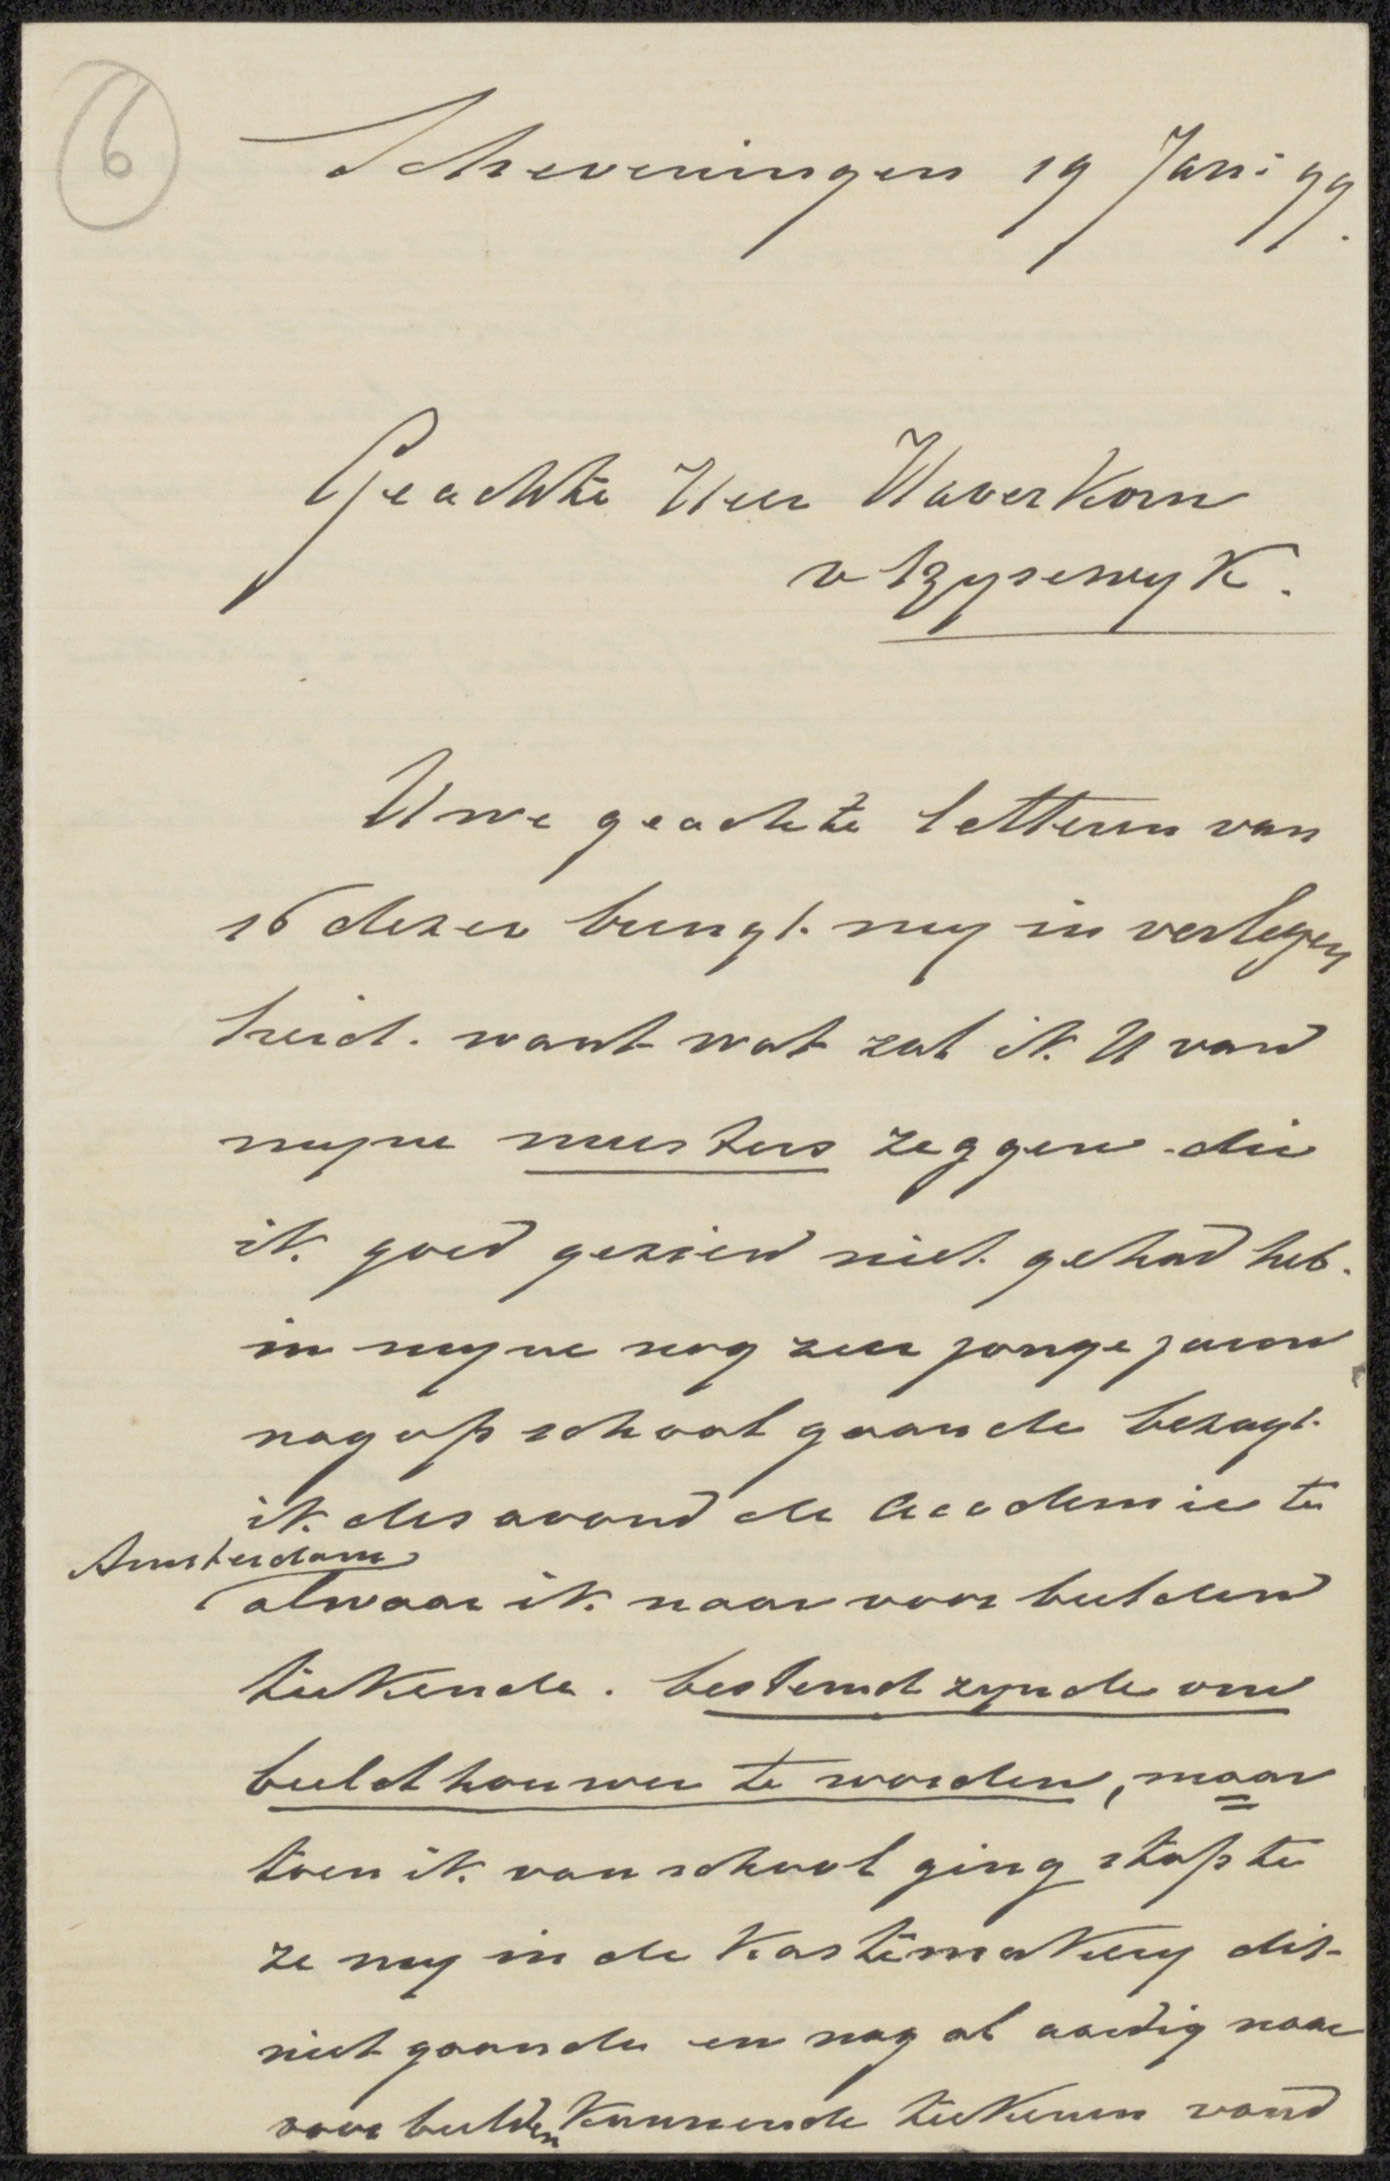 6
Scheveningen 19 Jan: 99.
Geachte Heer Haverkorn
v Rysewyk.
Uwe geachte letteren van
16 dezer brengt my in verlegen
heid. want wat zal ik U van
myne meesters zeggen die
ik goed gezien niet gehad heb.
in myne nog zeer jonge jaren
nog op school gaande bezagt
ik des avond de Academie te
Amsterdam
alwaar ik naar voor beelden
teekende. bestemd zynde om
beeldhouwer te worden, maar
toen ik van school ging stopte
ze my in de Kastemakery dit
niet gaande en nog al aardig naar
voor beelden kunnende teekenen vond